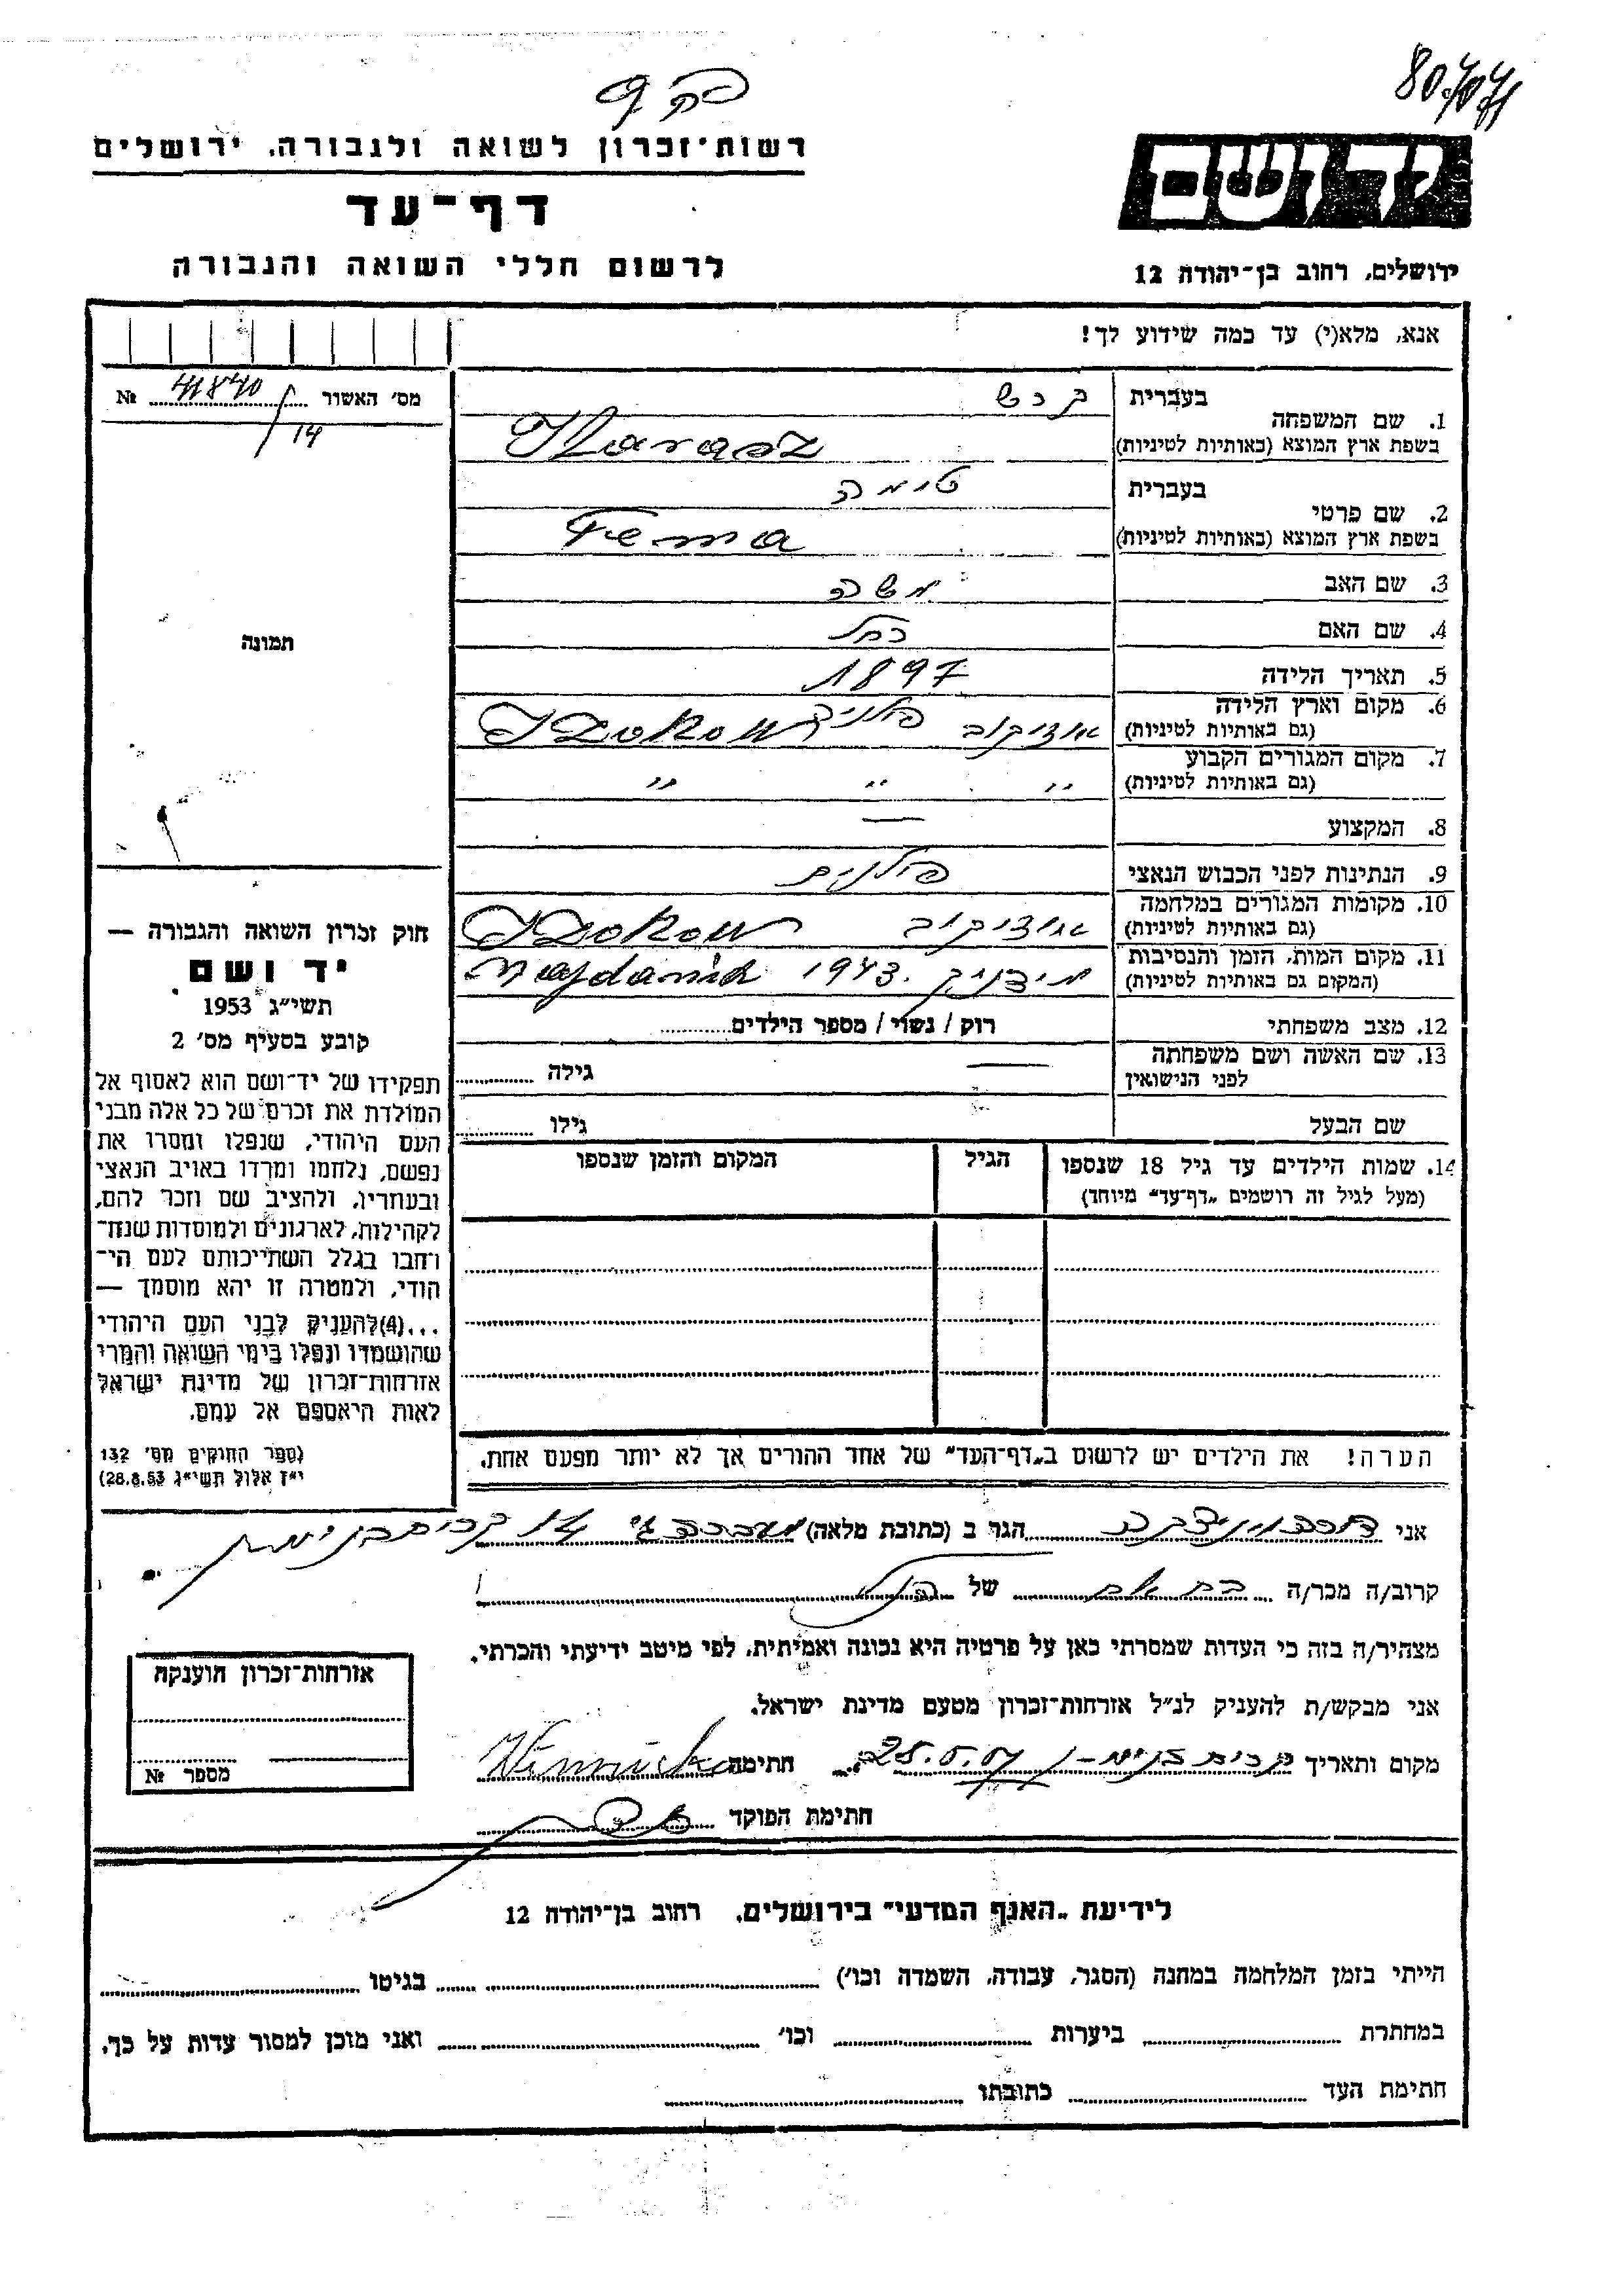 80/471
רשות־זכרון לשואה ולגבורה, ירושלים
יד ושם
דף־עד
לרשום חללי השואה והגבורה
ירושלים, רחוב בן־יהודה 12
אנא, מלא(י) עד כמה שידוע לך!
מס׳ האשור 41840 №
14
בעברית
1. שם המשפחה
בשפת ארץ המוצא (באותיות לטיניות) Karasz
בעברית טימה
2. שם פרטי
בשפת ארץ המוצא (באותיות לטיניות) Tema
3. שם האב משה
4. שם האם רחל
5. תאריך הלידה 1897
6. מקום וארץ הלידה
(גם באותיות לטיניות) פולניה
7. מקום המגורים הקבוע
(גם באותיות לטיניות) " " "
8. המקצוע —
9. הנתינות לפני הכבוש הנאצי פולנית
10. מקומות המגורים במלחמה
(גם באותיות לטיניות)
11. מקום המות, הזמן והנסיבות
(המקום גם באותיות לטיניות) מידניק 1943. Majdanik
12. מצב משפחתי רוק / נשוי / מספר הילדים
13. שם האשה ושם משפחתה
לפני הנישואין — גילה
שם הבעל גילו
14. שמות הילדים עד גיל 18 שנספו הגיל המקום והזמן שנספו
(מעל לגיל זה רושמים „דף־עד״ מיוחד)
הערה! את הילדים יש לרשום ב„דף־העד״ של אחד ההורים אך לא יותר מפעם אחת.
תמונה
חוק זכרון השואה והגבורה —
יד ושם
תשי״ג 1953
קובע בסעיף מס׳ 2
תפקידו של יד־ושם הוא לאסוף אל
המולדת את זכרם של כל אלה מבני
העם היהודי, שנפלו ומסרו את
נפשם, נלחמו ומרדו באויב הנאצי
ובעוזריו, ולהציב שם וזכר להם,
לקהילות, לארגונים ולמוסדות שנח־
רחבו בגלל השתייכותם לעם הי־
הודי, ולמטרה זו יהא מוסמך —
...(4) להעניק לבני העם היהודי
שהושמדו ונפלו בימי השואה והמרי
אזרחות־זכרון של מדינת ישראל
לאות היאספם אל עמם.
(ספר החוקים מס׳ 132
י״ז אלול תשי״ג 28.8.53)
אני הגר ב (כתובת מלאה)
קרוב/ה מכר/ה של
מצהיר/ה בזה כי העדות שמסרתי כאן על פרטיה היא נכונה ואמיתית, לפי מיטב ידיעתי והכרתי.
אני מבקש/ת להעניק לנ״ל אזרחות־זכרון מטעם מדינת ישראל.
מקום ותאריך חתימה
חתימת הפוקד
אזרחות־זכרון הוענקה
מספר №
לידיעת „האגף המדעי״ בירושלים, רחוב בן־יהודה 12
הייתי בזמן המלחמה במחנה (הסגר, עבודה, השמדה וכו׳) בגיטו
במחתרת ביערות וכו׳ ואני מוכן למסור עדות על כך.
חתימת העד כתובתו